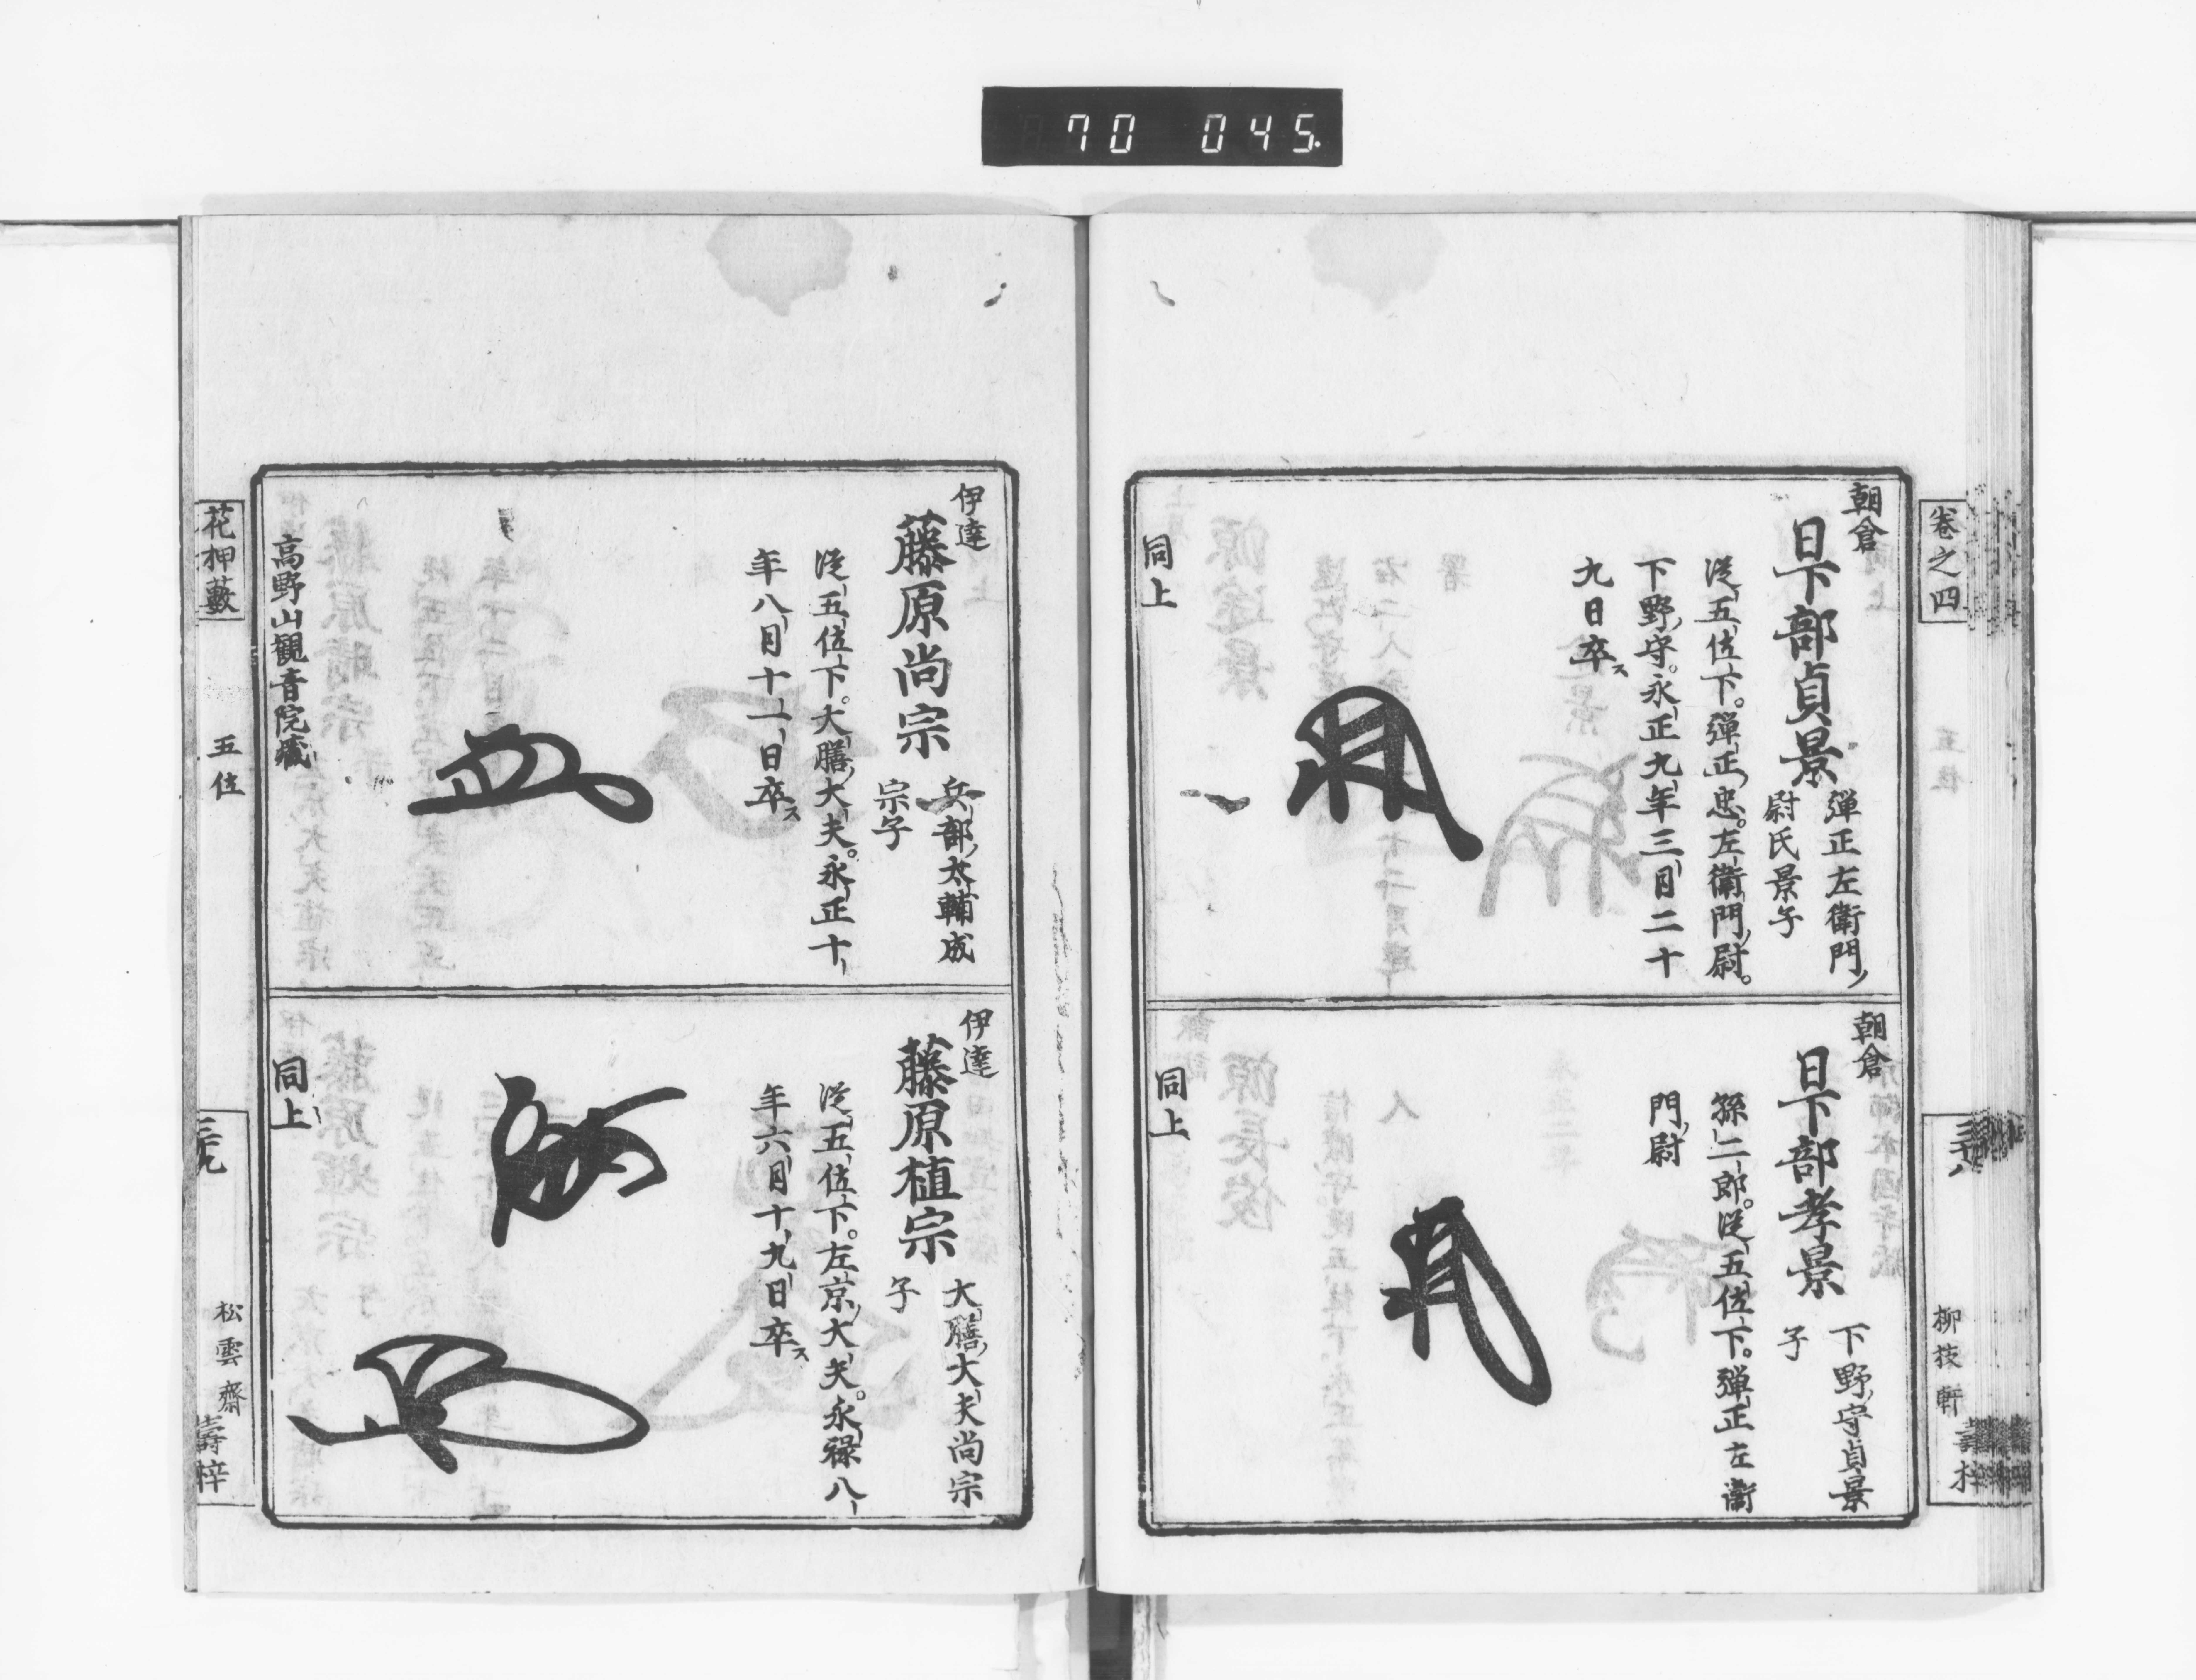 70 045.
卷之四
三十八
柳枝軒
壽梓
朝倉
日下部貞景
彈正左衛門
尉氏景子
從五位下。彈正忠。左衛門尉。
下野守。永正九年三月二十
九日卒ス
同上
朝倉
日下部孝景
下野守貞景
子
孫二郎。從五位下。彈正左衛
門尉
同上
伊達
藤原尚宗
兵部太輔成
宗子
從五位下。大膳大夫。永正十一
年八月十一日卒ス
高野山觀音院藏
伊達
藤原植宗
大膳大夫尚宗
子
從五位下。左京大夫。永祿八
年六月十九日卒ス
同上
花押藪
五位
三十九
松雲齋
壽梓